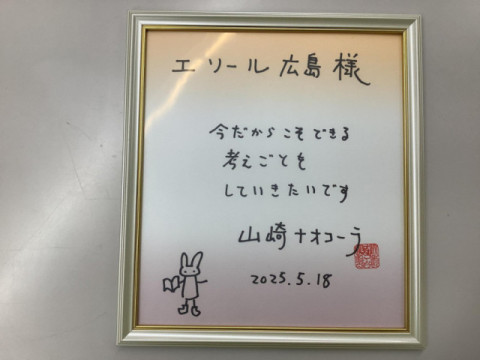 エソール広島様
今だからこそできる
考えごとを
していきたいです
山崎ナオコーラ
2025.5.18